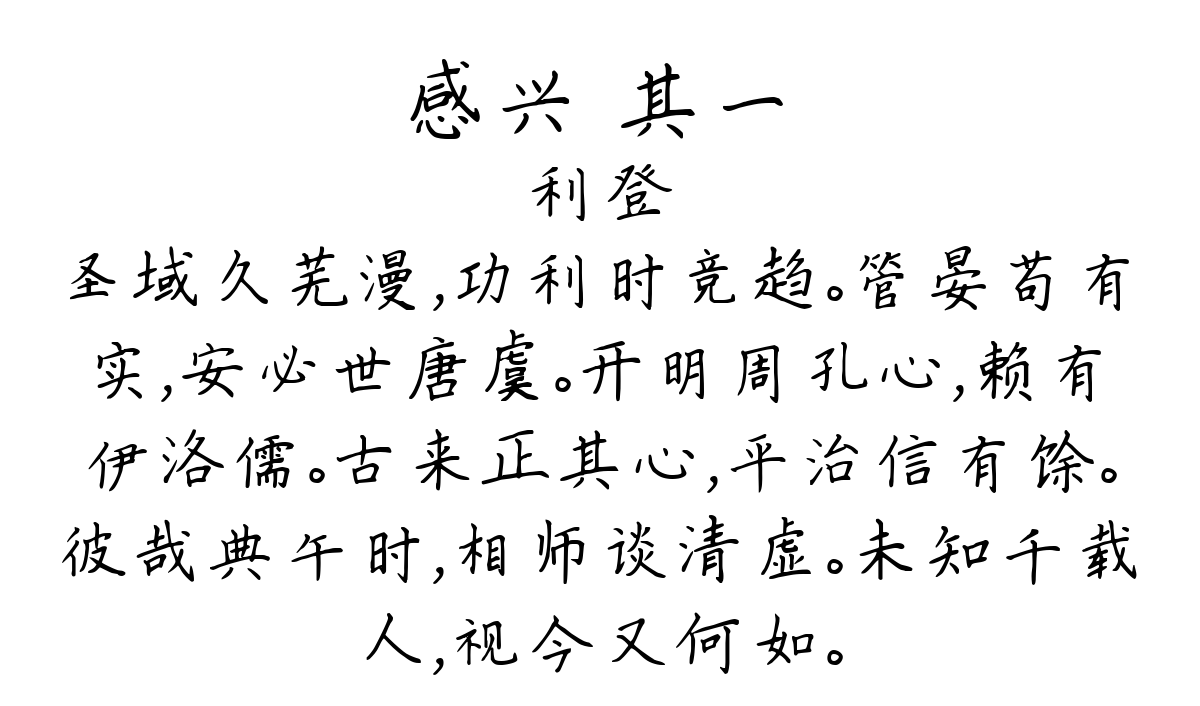 感兴 其一
利登
圣域久芜漫,功利时竞趋。管晏苟有
实,安必世唐虞。开明周孔心,赖有
伊洛儒。古来正其心,平治信有馀。
彼哉典午时,相师谈清虚。未知千载
人,视今又何如。